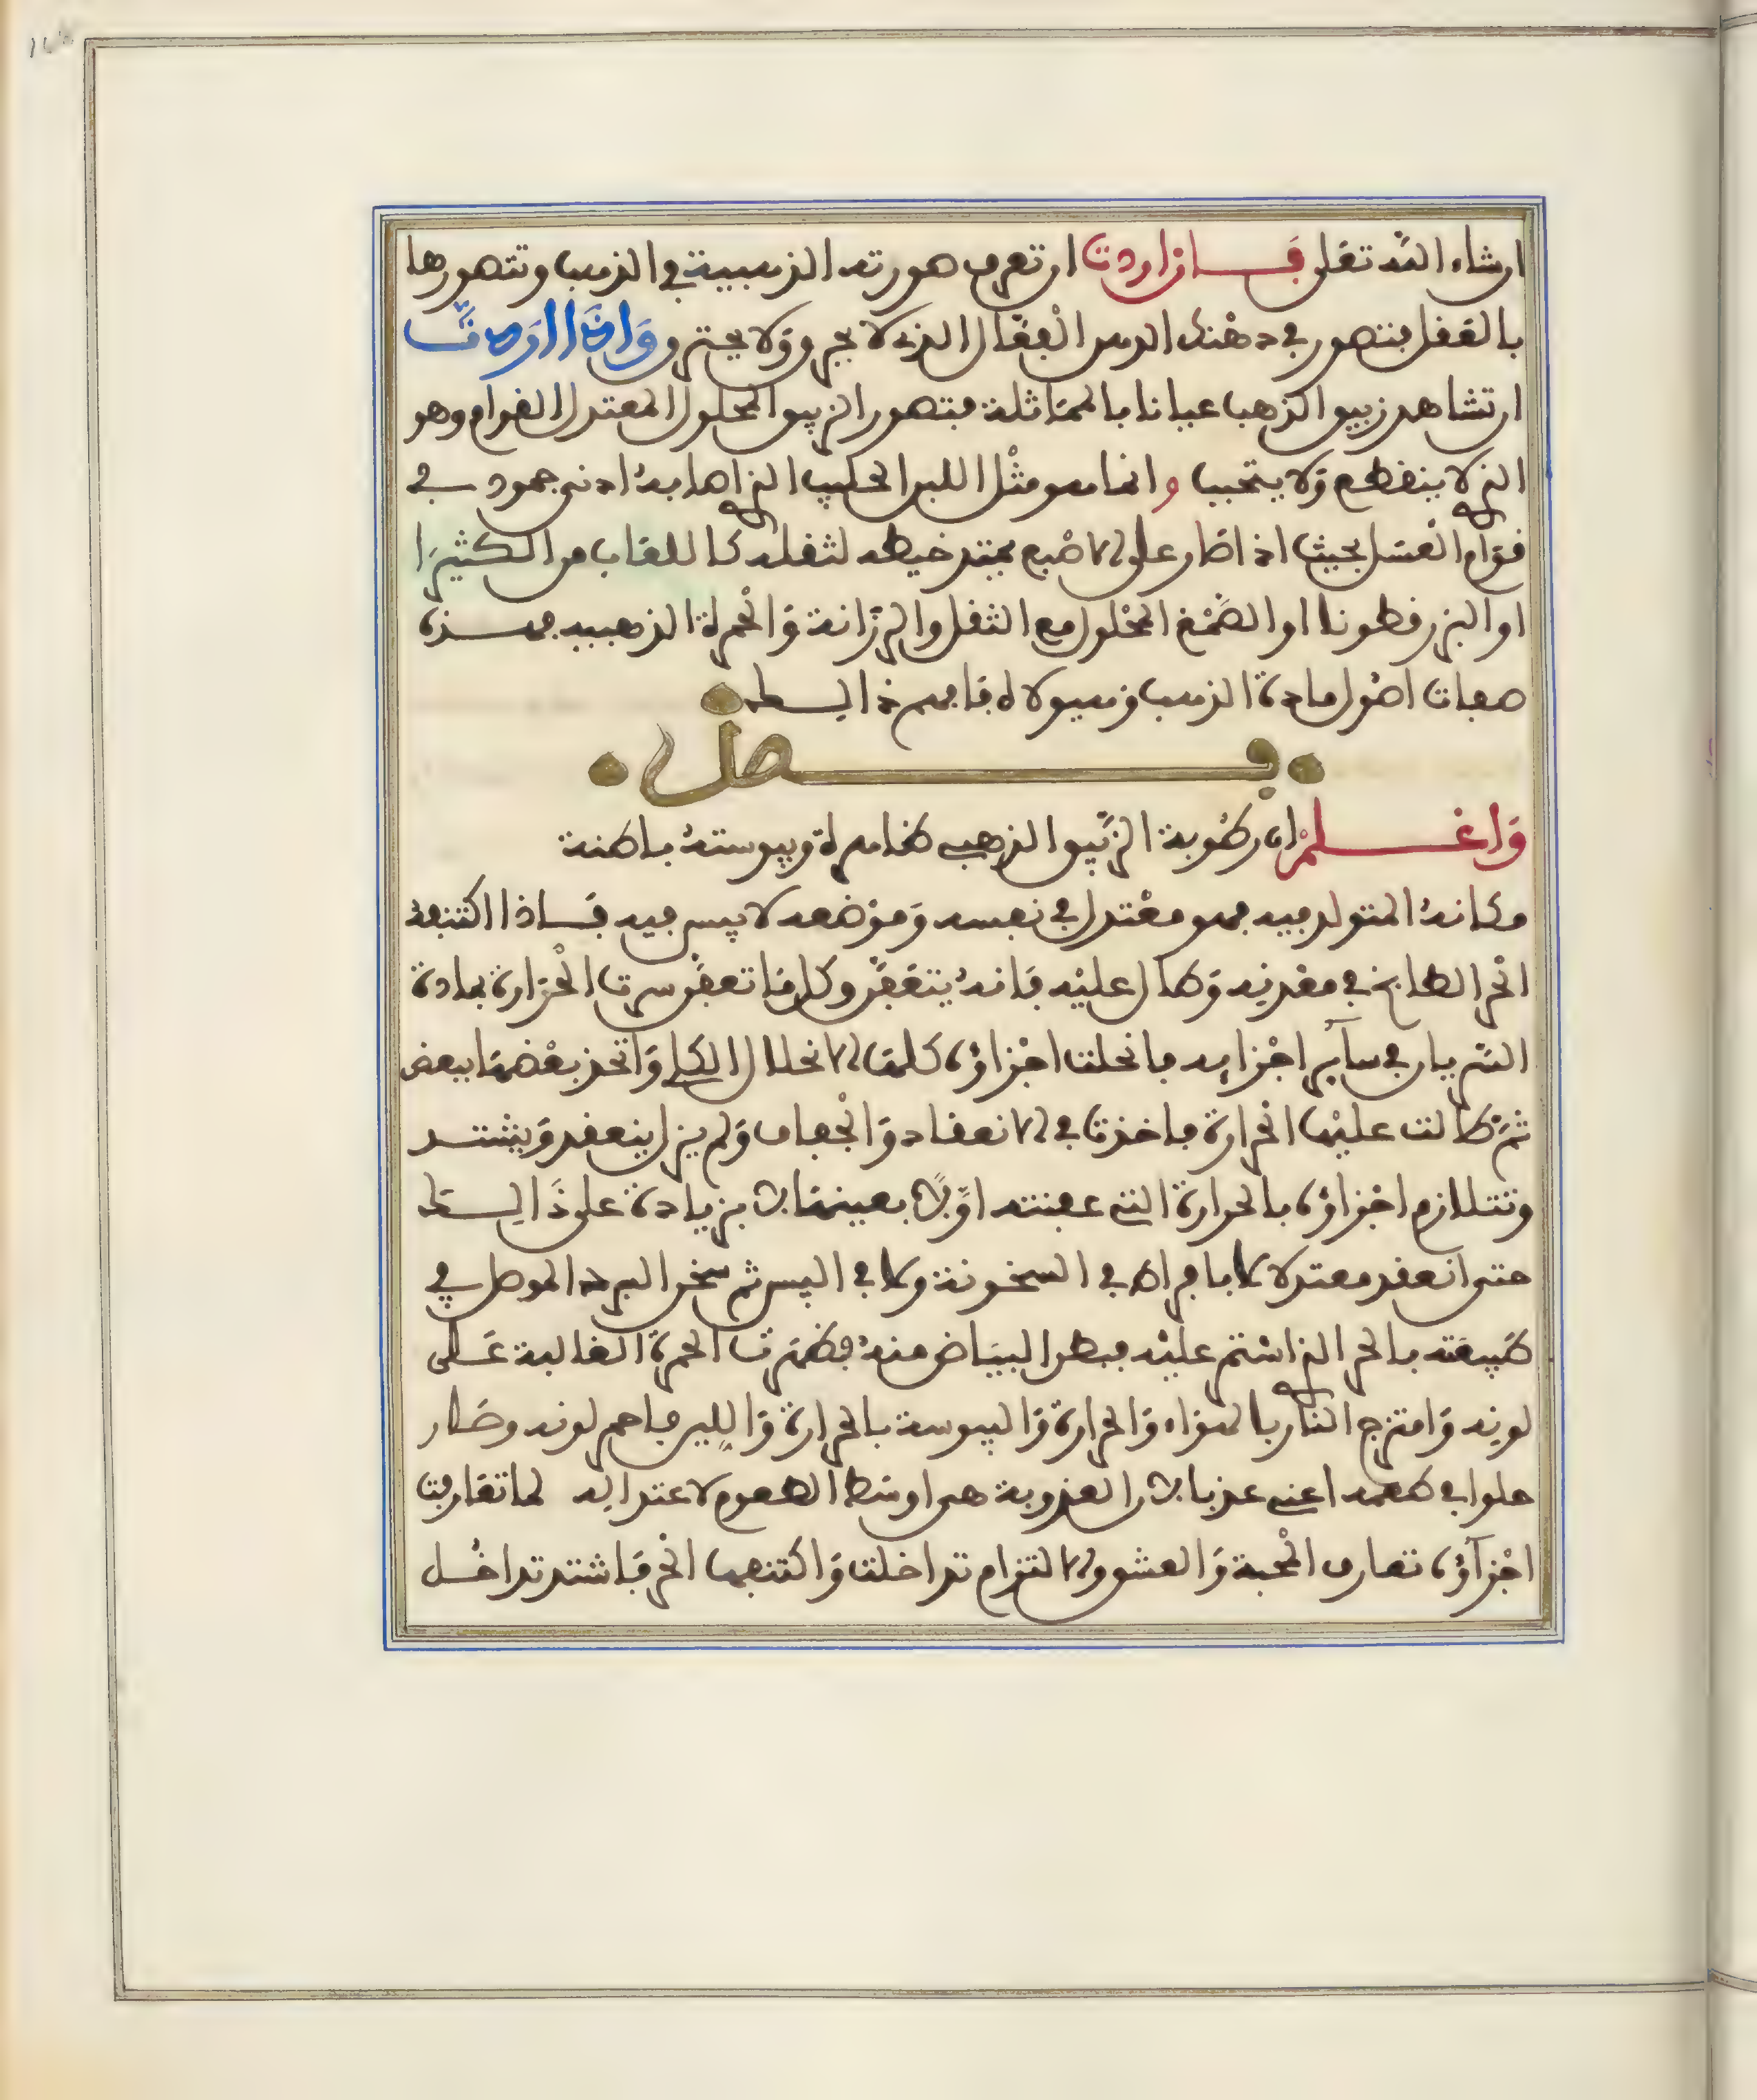 ان شاء الله تعلى فان اردت ان تعرف صورته الذهبية في الذهب وتتصورها
بالعقل فتتصور في ذهنك الدهن الفعال الذي لا يجر ولا يحترق واذا اردت
ان تشاهد زيبق الذهب عيانا بالمماثلة فتصور الزيبق المحلول المعتدل القوام وهو
الذي لا ينقطع ولا يتحبب وانما هو مثل اللبن الحليب الذي اصابه ادنى جمود في
قوام العسل بحيث اذا صار على الاصبع يمتد خيطه لثقله كاللعاب من الكثيرا
او البزرقطونا او الصمغ المحلول مع الثقل والرزانة والحمرة الذهبيه فهذه
صفات اصول مادة الذهب وهيولاه فافهم ذالك
فصل
واعلم ان رطوبة الزئبق الذهبي ظاهرة ويبوسته باطنة
ومكانه المتولد فيه فهو معتدل في نفسه وموضعه لا يبس فيه فاذا اكتنفه
الحر الطابخ في معدنه وطال عليه فانه يتعفن وكل ما تعفن سرت الحرارة بمادة
السريان في سآير اجزايه فانحلت اجزاؤه كلها الانحلال الكلي واتحد بعضها ببعض
ثم طالت عليها الحرارة فاخذت في الانعقاد والجفاف ولم يزل ينعقد ويشتد
وتتلازم اجزاؤه بالحرارة التي عفنته اولا بعينها لا بزيادة على ذالك
حتى انعقد معتدلا لا بافراط في السخونة ولا في اليبس ثم سخن البرد الموصل في
طبيعته بالحر الذي استمر عليه فبطن البياض منه فظهرت الحمرة الغالبة على
لونه وامتزج النار بالهواء والحرارة واليبوسة بالحرارة واللين فاحمر لونه وصار
حلوا في طعمه اعني عذبا لان العذوبة هي اوسط الطعوم لاعتداله لما تقاربت
اجزآؤه تعارف المحبة والعشق والالتزام تداخلت واكتنفها الحر فاشتد تداخل